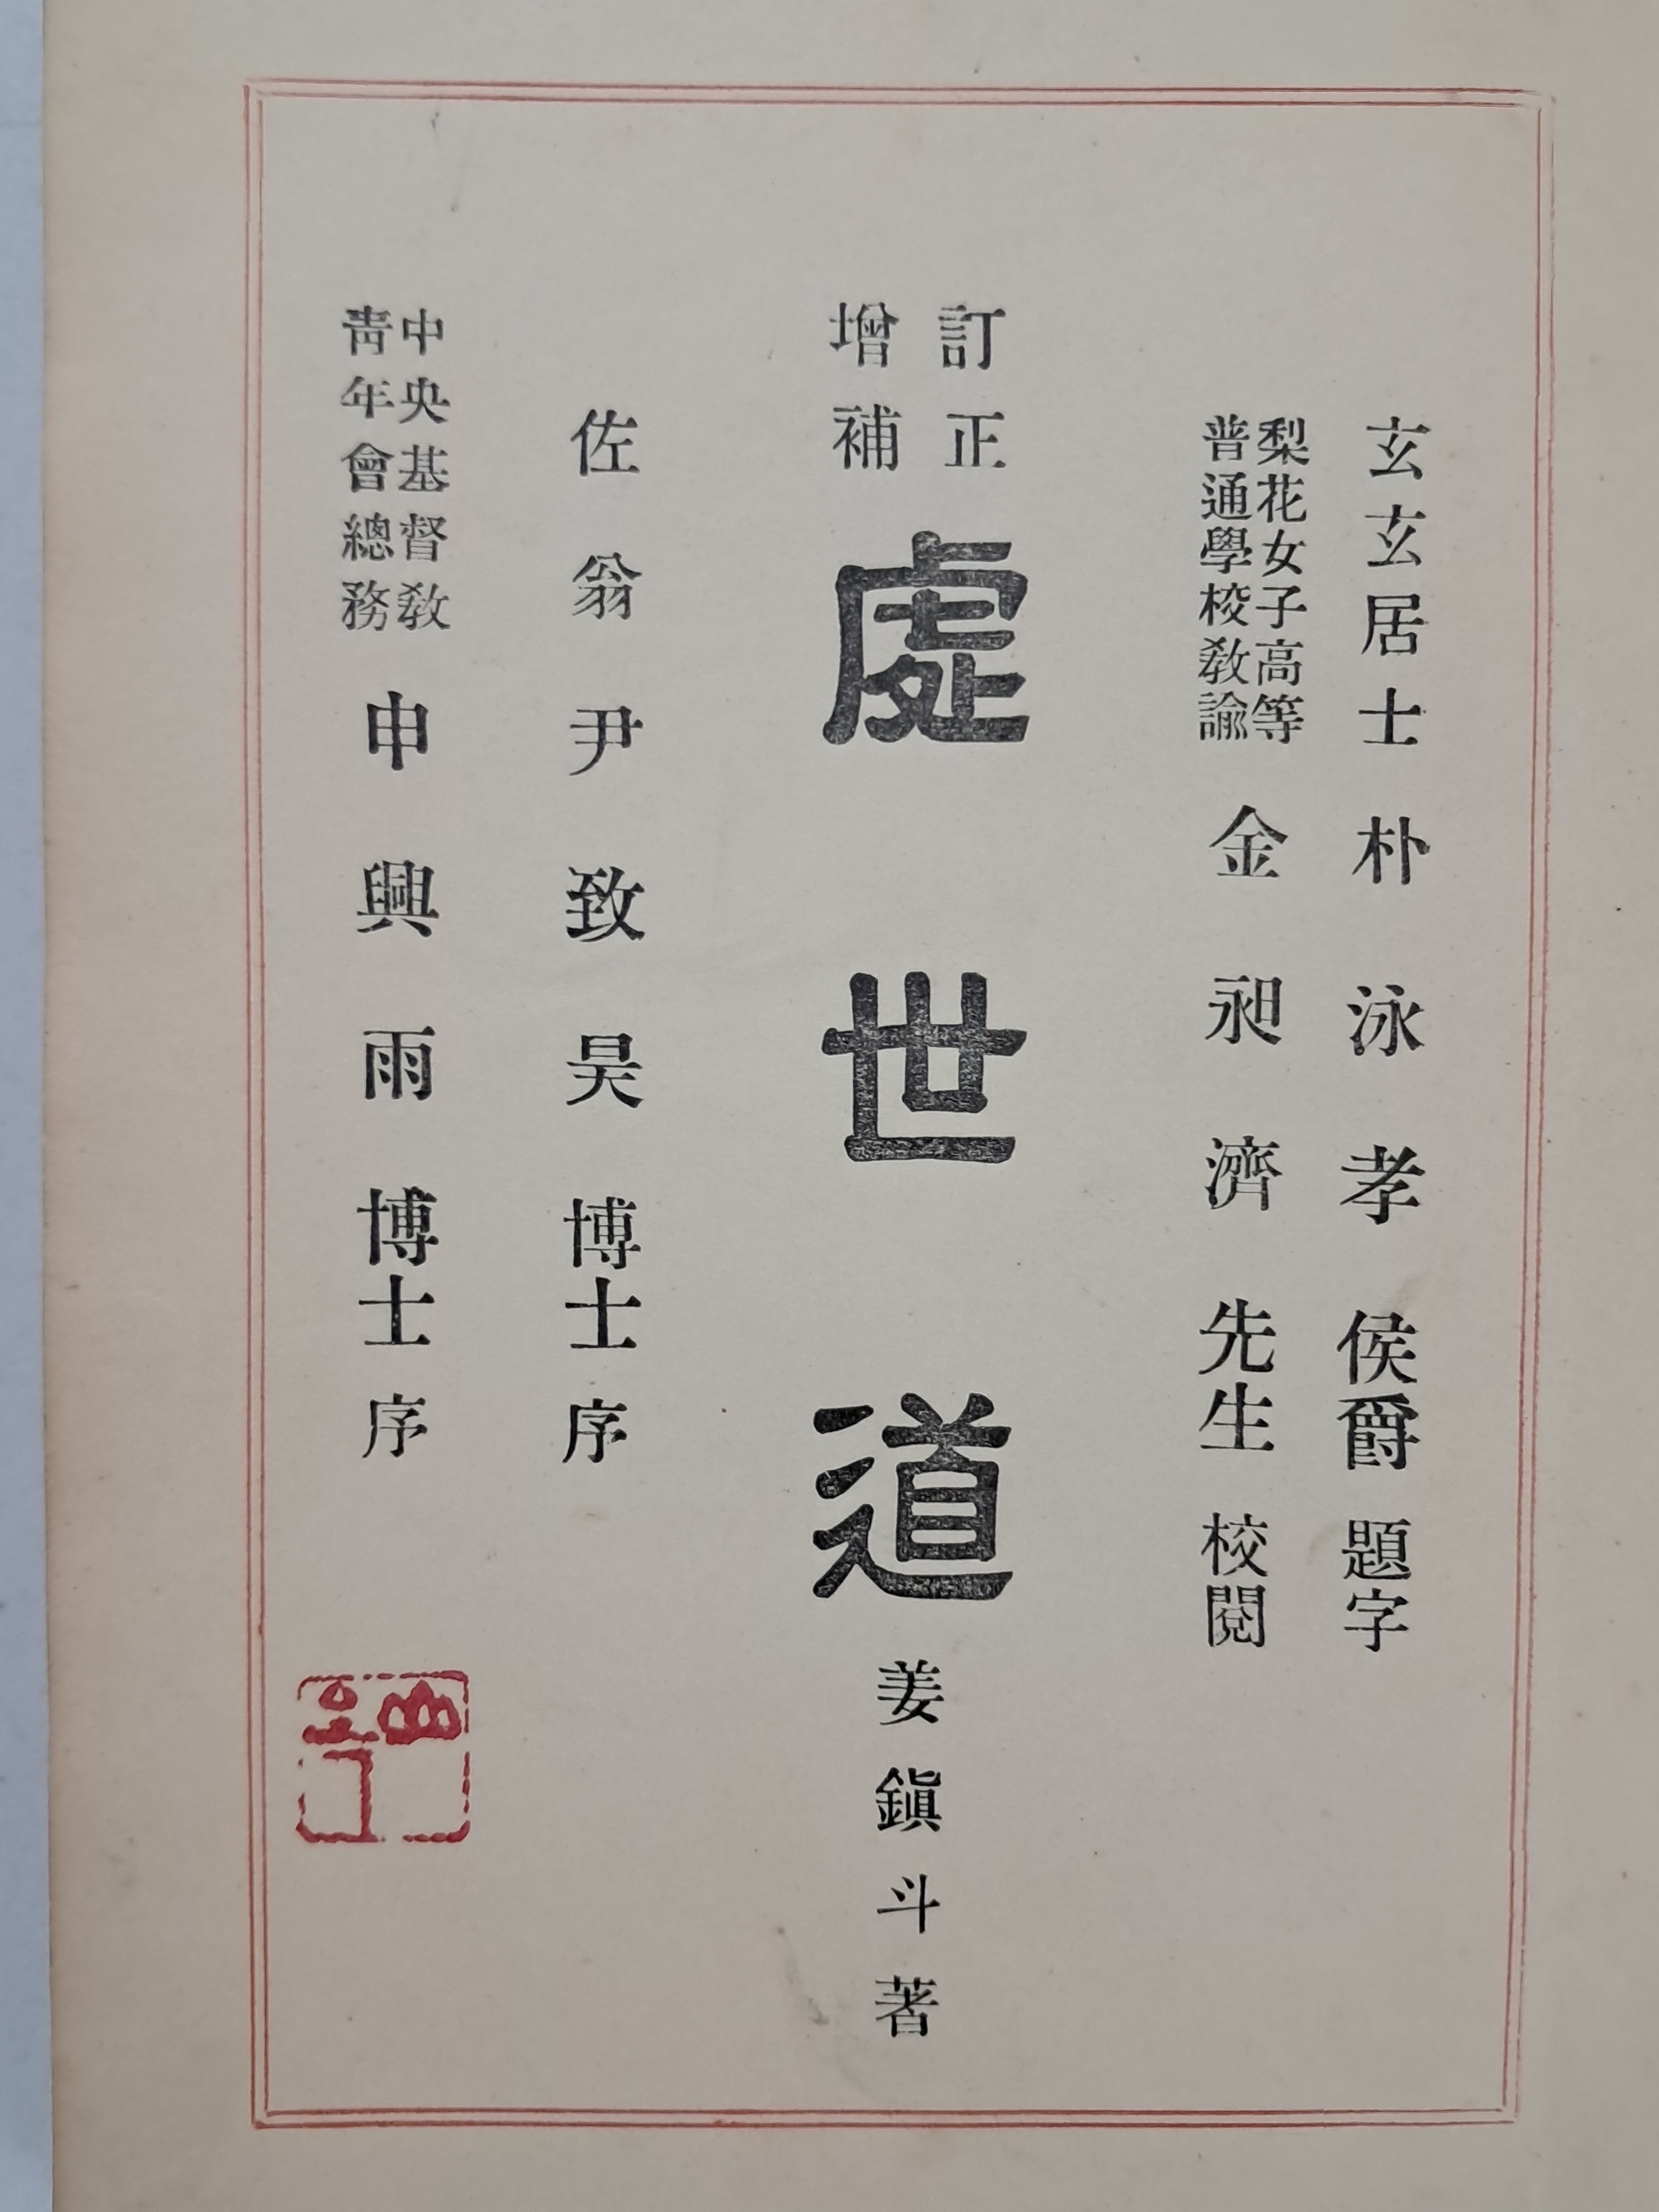 玄玄居士 朴泳孝 侯爵 題字
梨花女子高等
普通學校敎諭
金昶濟 先生 校閱
訂正
增補
處世道
姜鎭斗著
佐翁 尹致昊 博士 序
中央基督敎
靑年會總務
申興雨 博士 序